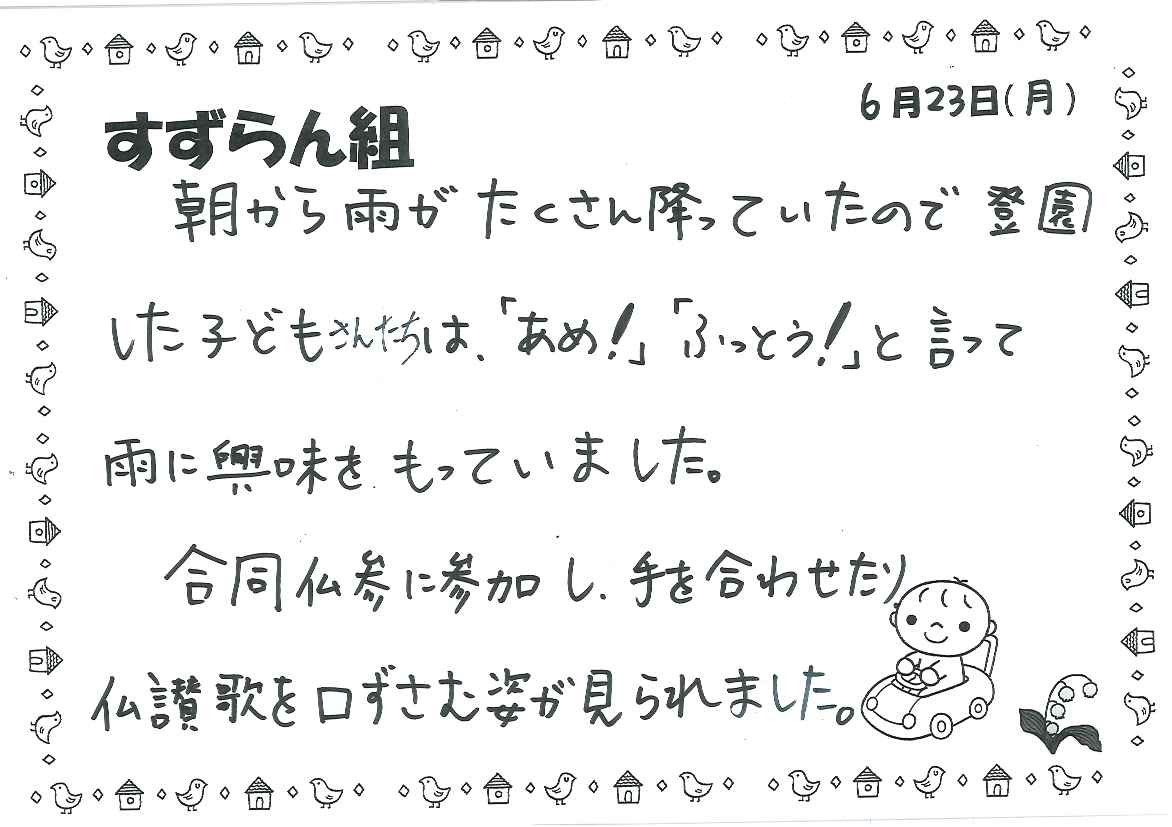 6月23日(月)
すずらん組
朝から雨がたくさん降っていたので登園
した子どもさんたちは、「あめ!」「ふっとう!」と言って
雨に興味をもっていました。
合同仏参に参加し、手を合わせたり
仏讃歌を口ずさむ姿が見られました。